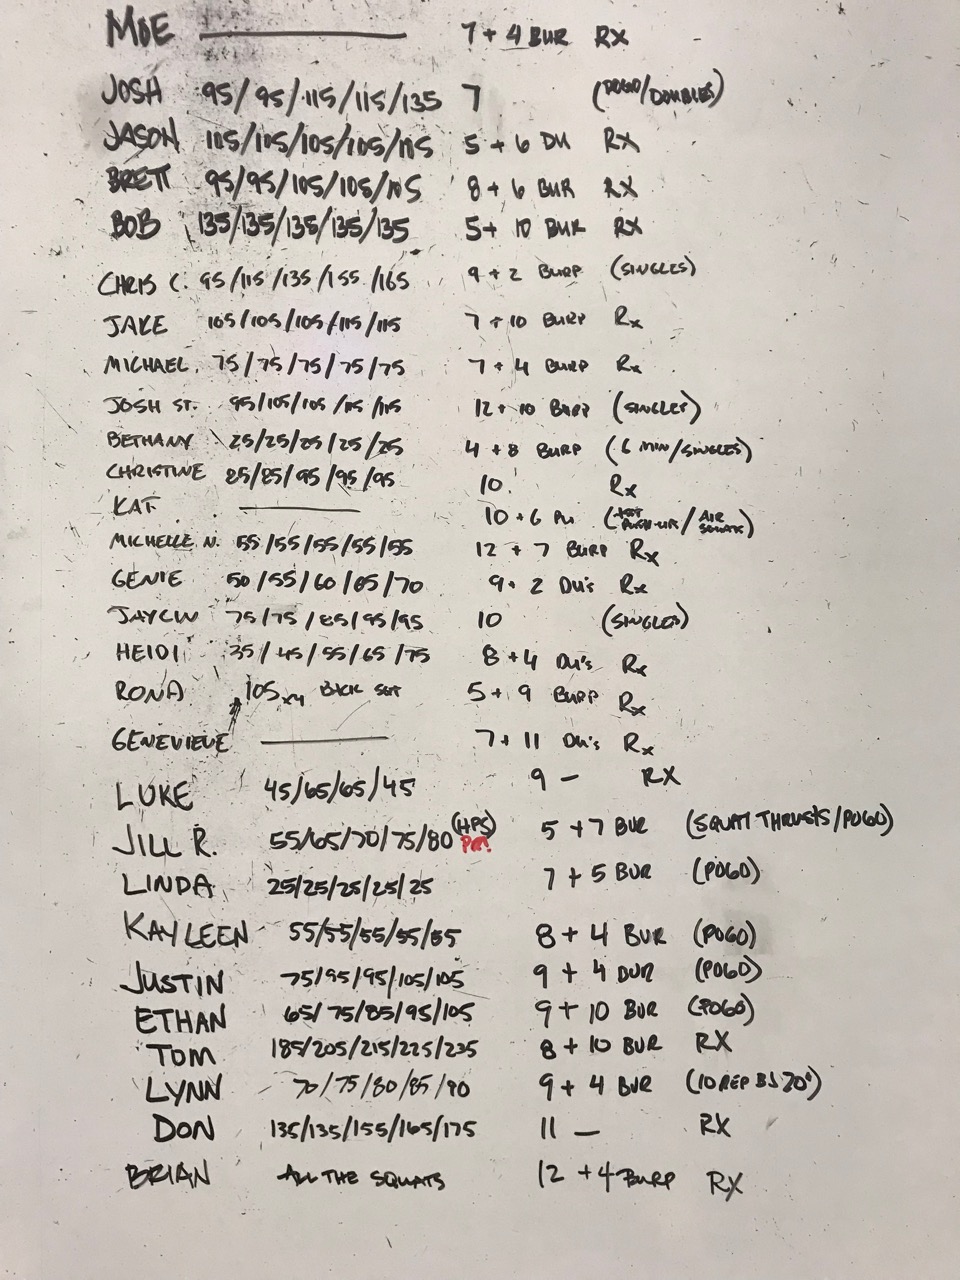 MOE — 7 + 4 BUR RX
JOSH 95/95/115/115/135 7 (POGO/DOUBLES)
JASON 105/105/105/105/105 5 + 6 DU RX
BRETT 95/95/105/105/105 8 + 6 BUR RX
BOB 135/135/135/135/135 5 + 10 BUR RX
CHRIS C. 95/115/135/155/165 9 + 2 BURP (SINGLES)
JAKE 105/105/105/115/115 7 + 10 BURP Rx
MICHAEL 75/75/75/75/75 7 + 4 BURP Rx
JOSH ST. 95/105/105/115/115 12 + 10 BURP (SINGLES)
BETHANY 25/25/25/25/25 4 + 8 BURP (6 MIN/SINGLES)
CHRISTINE 85/85/95/95/95 10 Rx
KAT — 10 + 6 PU (PUSH-UP/AIR SQUATS)
MICHELLE N. 55/55/55/55/55 12 + 7 BURP Rx
GENIE 50/55/60/65/70 9 + 2 DU's Rx
JAYCIN 75/75/85/95/95 10 (SINGLES)
HEIDI 35/45/55/65/75 8 + 4 DU's Rx
RONA 105 x4 BACK SQT 5 + 9 BURP Rx
GENEVIEVE — 7 + 11 DU's Rx
LUKE 45/65/65/45 9 — RX
JILL R. 55/65/70/75/80 (HPS) PR! 5 + 7 BUR (SQUAT THRUSTS/POGO)
LINDA 25/25/25/25/25 7 + 5 BUR (POGO)
KAYLEEN 55/55/55/55/55 8 + 4 BUR (POGO)
JUSTIN 75/95/95/105/105 9 + 4 BUR (POGO)
ETHAN 65/75/85/95/105 9 + 10 BUR (POGO)
TOM 185/205/215/225/235 8 + 10 BUR RX
LYNN 70/75/80/85/90 9 + 4 BUR (10 REP BJ 20")
DON 135/135/155/165/175 11 — RX
BRIAN ALL THE SQUATS 12 + 4 BURP RX